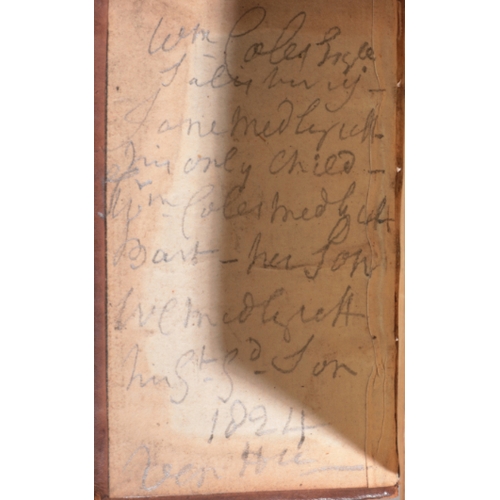 Wm Coles Esqre
Salisbury -
Jane Medlycott
his only Child -
Wm Coles Medlycott
Bart - her Son
Medlycott
his Gt Gd Son
1824
Ven Hill